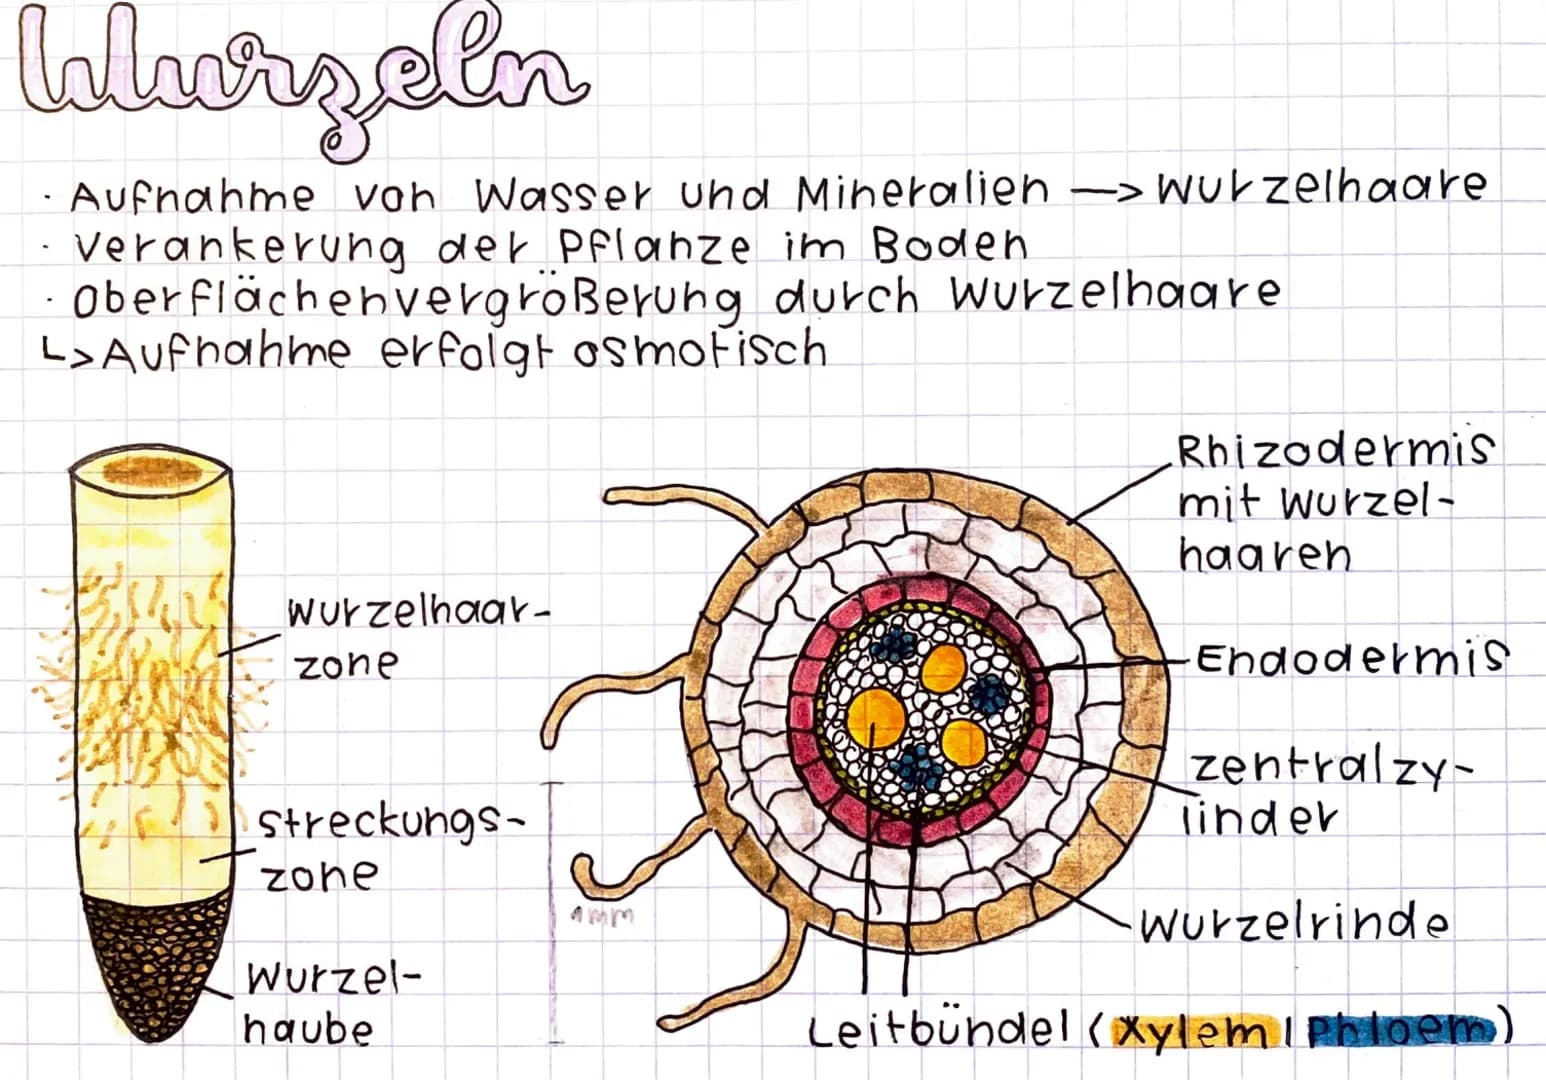 Wurzeln
· Aufnahme von Wasser und Mineralien —> Wurzelhaare
· Verankerung der Pflanze im Boden
· Oberflächenvergrößerung durch Wurzelhaare
↳ Aufnahme erfolgt osmotisch
Wurzelhaar-
zone
Streckungs-
zone
Wurzel-
haube
1mm
Rhizodermis
mit Wurzel-
haaren
Endodermis
Zentralzy-
linder
Wurzelrinde
Leitbündel (Xylem | Phloem)